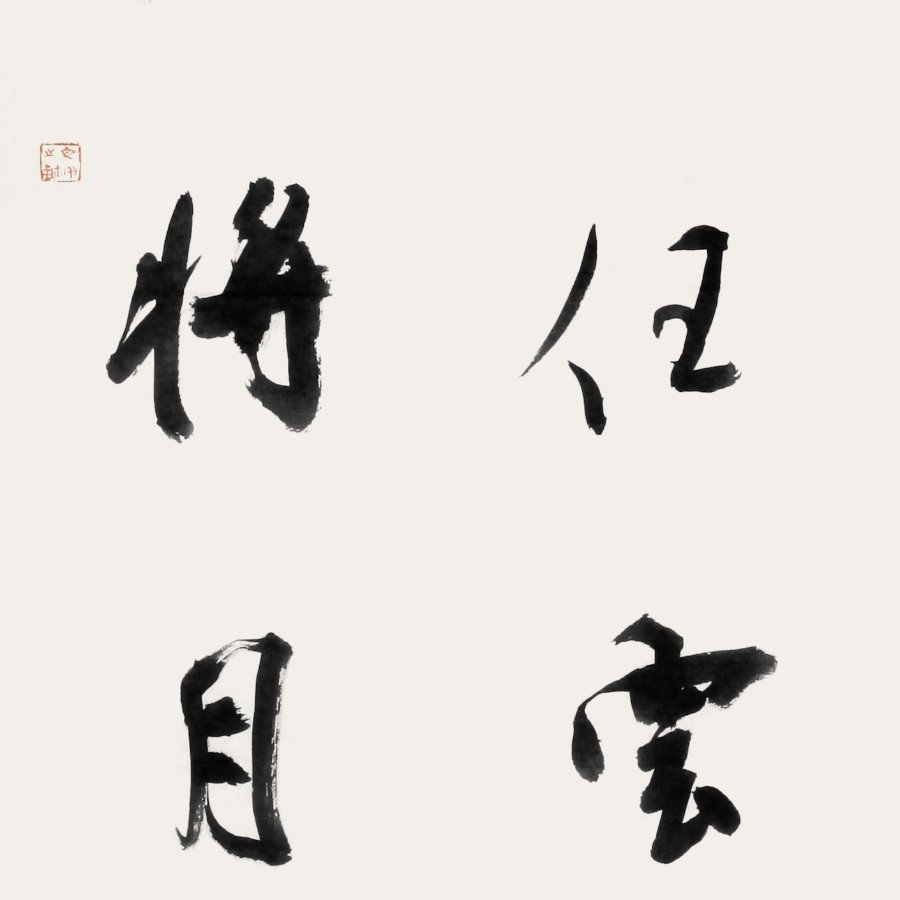 任雲
將月